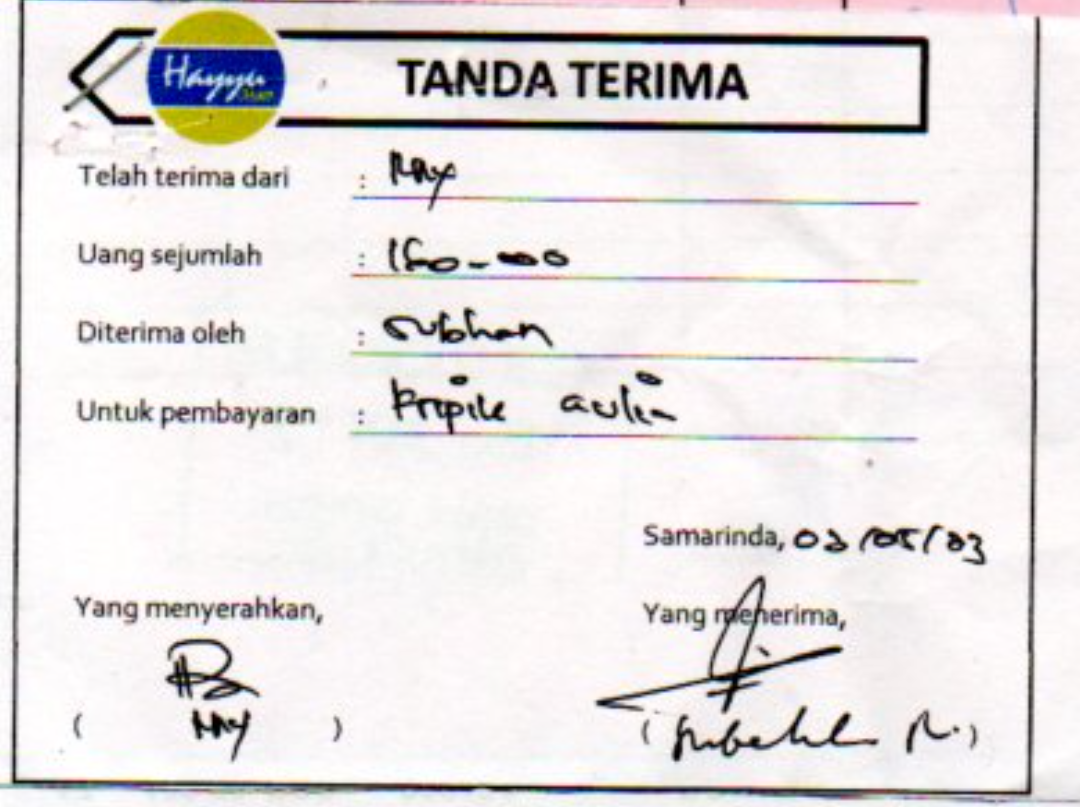 Hayyu
TANDA TERIMA
Telah terima dari : May
Uang sejumlah : 150.000
Diterima oleh : Subhan
Untuk pembayaran : Kripik aulia
Samarinda, 03/05/23
Yang menyerahkan,
Yang menerima,
( May )